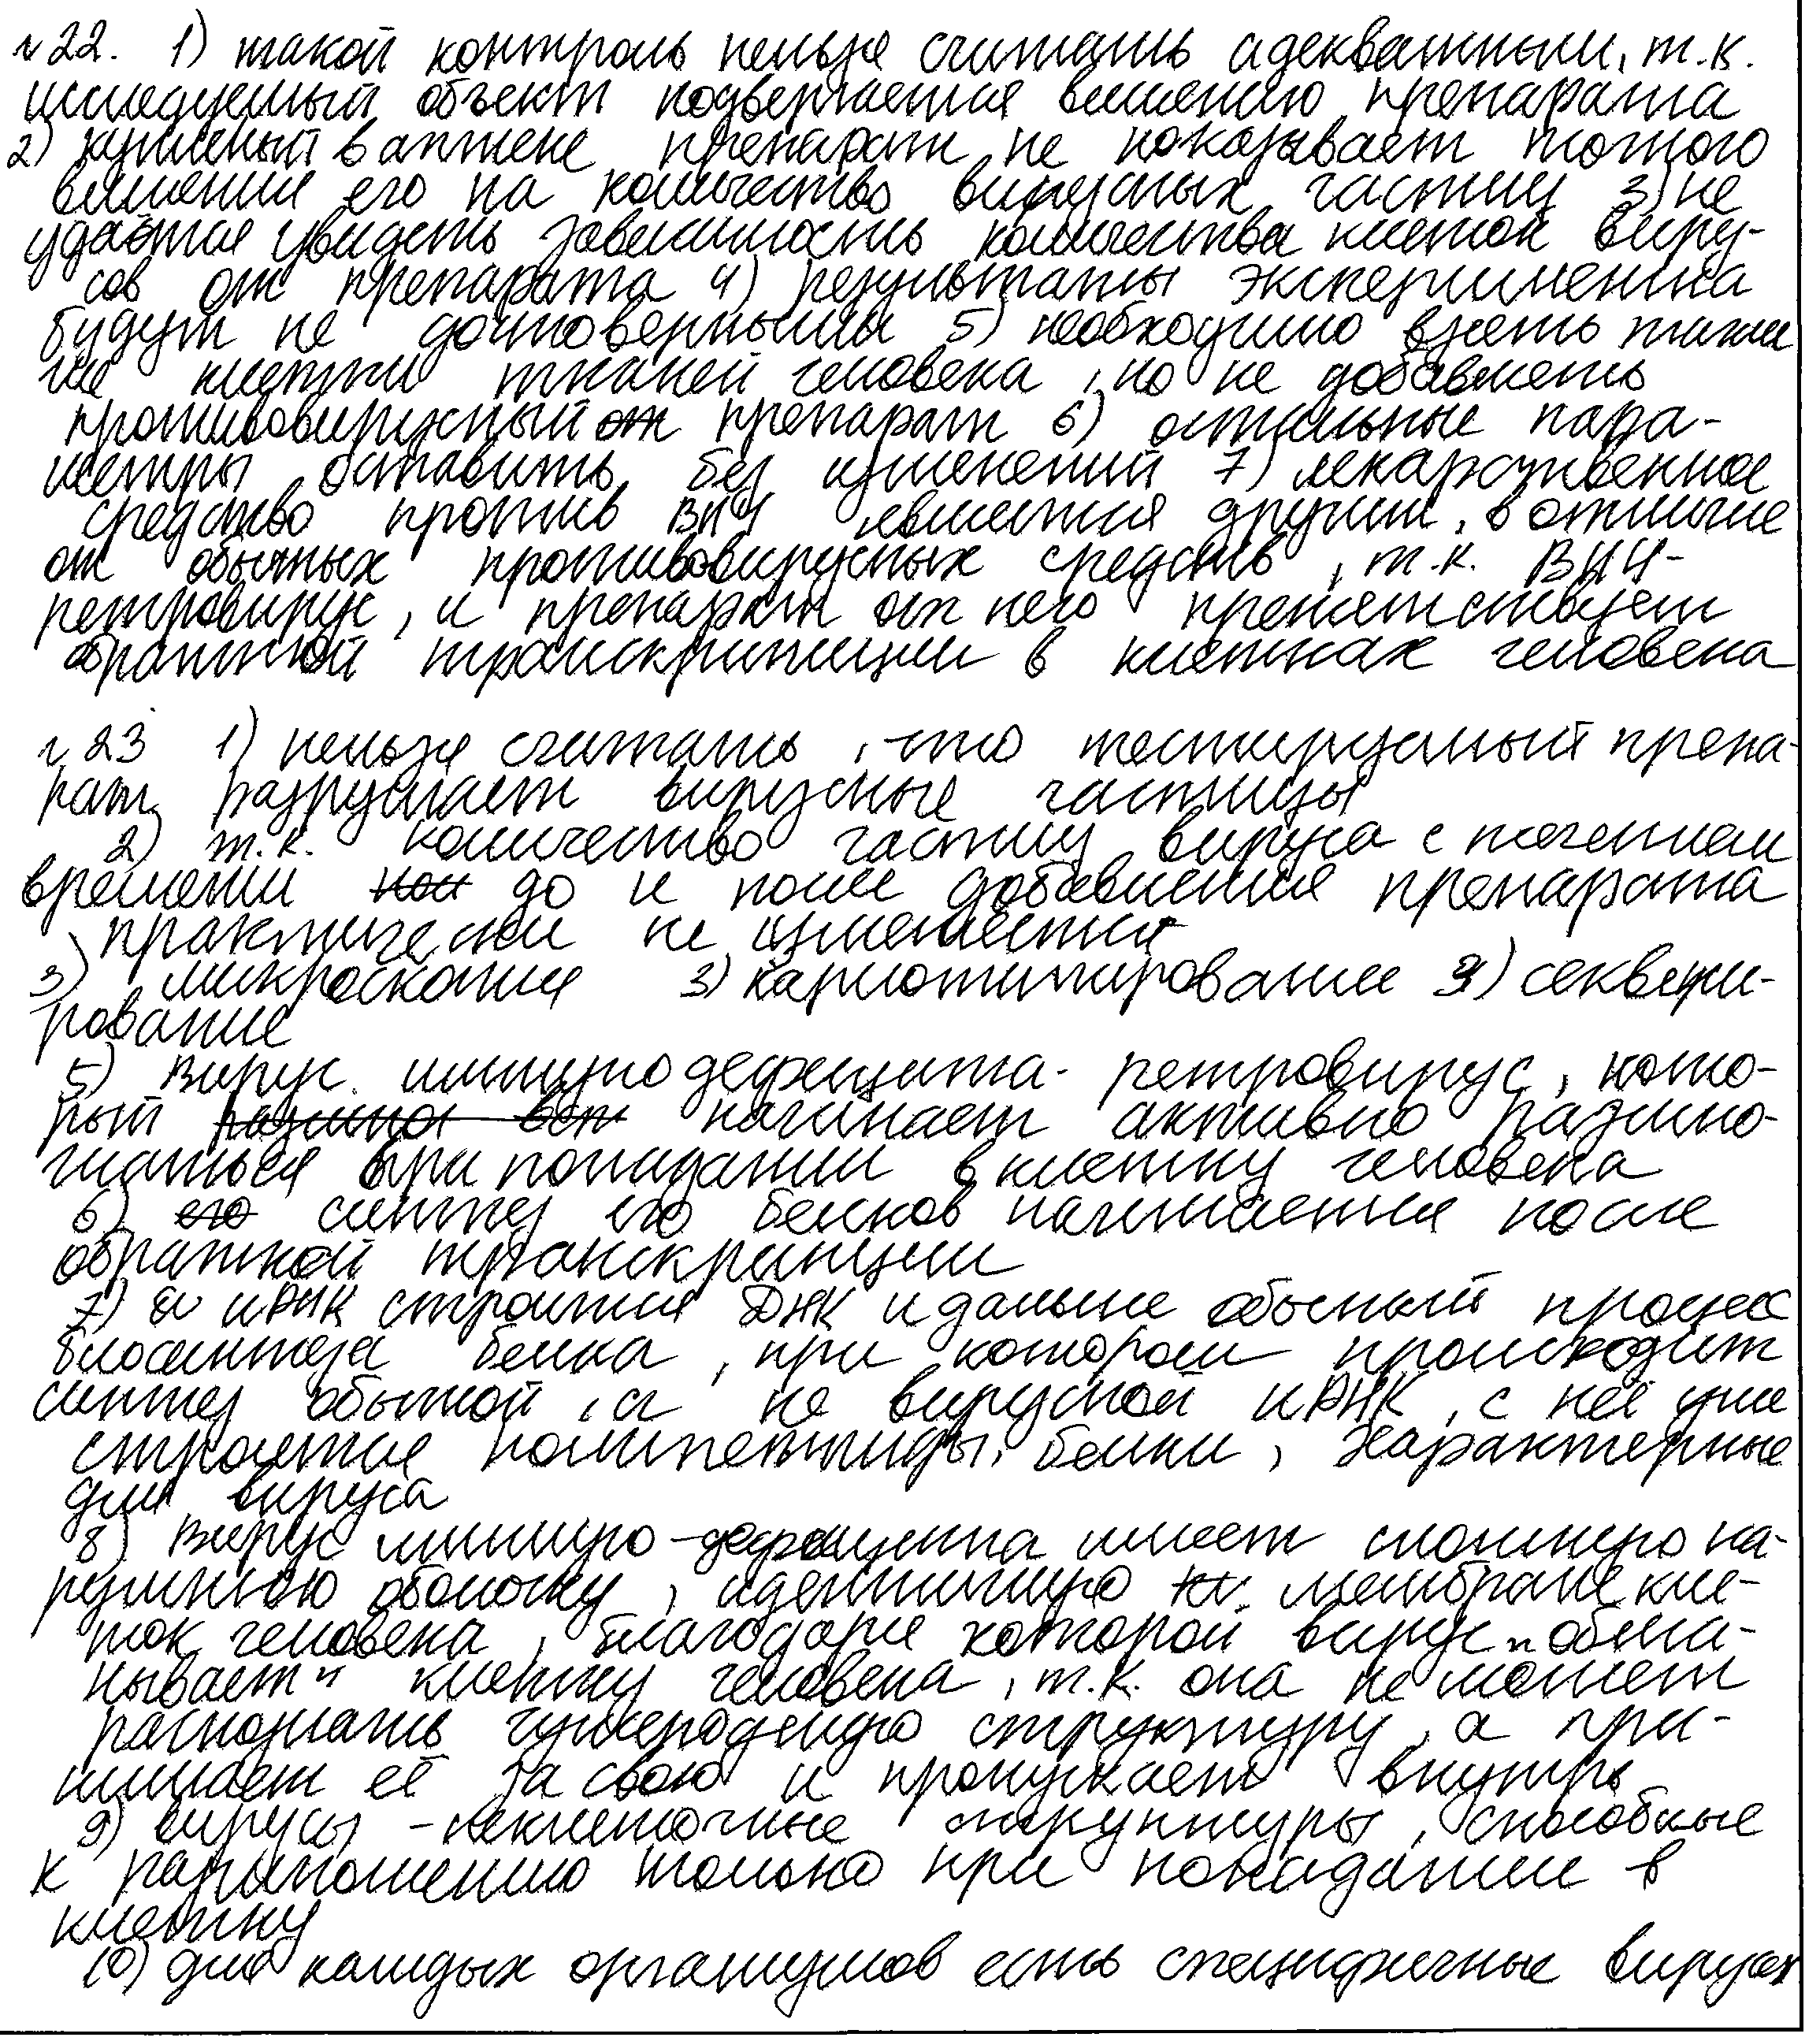 №22. 1) такой контроль нельзя считать адекватным, т.к.
исследуемый объект подвергается влиянию препарата
2) купленный в аптеке препарат не показывает точного
влияния его на количество вирусных частиц 3) не
удаётся увидеть зависимость количества клеток виру-
сов от препарата 4) результаты эксперимента
будут не достоверными 5) необходимо взять такие
же клетки тканей человека, но не добавлять
противовирусный препарат 6) остальные пара-
метры оставить без изменений 7) лекарственное
средство против ВИЧ является другим, в отличие
от обычных противовирусных средств, т.к. ВИЧ-
ретровирус, и препарат от него препятствует
обратной транскрипции в клетках человека
№23 1) нельзя считать, что тестируемый препа-
рат разрушает вирусные частицы
2) т.к. количество частиц вируса с течением
времени до и после добавления препарата
практически не изменяется
3) микроскопия 3) кариотипирование 4) секвени-
рование
5) Вирус иммунодефицита- ретровирус, кото-
рый начинает активно размно-
жаться при попадании в клетку человека
6) синтез его белков начинается после
обратной транскрипции
7) из иРНК строится ДНК и дальше обычный процесс
биосинтеза белка, при котором происходит
синтез обычной, а не вирусной иРНК, с неё уже
строятся полипептиды, белки, характерные
для вируса
8) Вирус иммуно-дефицита имеет сложную на-
ружнюю оболочку, идентичную мембране кле-
ток человека, благодаря которой вирус "обма-
нывает" клетку человека, т.к. она не может
распознать чужеродную структуру, а при-
нимает её за свою и пропускает внутрь
9) вирусы - неклеточные структуры, способные
к размножению только при попадании в
клетку
10) для каждых организмов есть специфичные вирусы